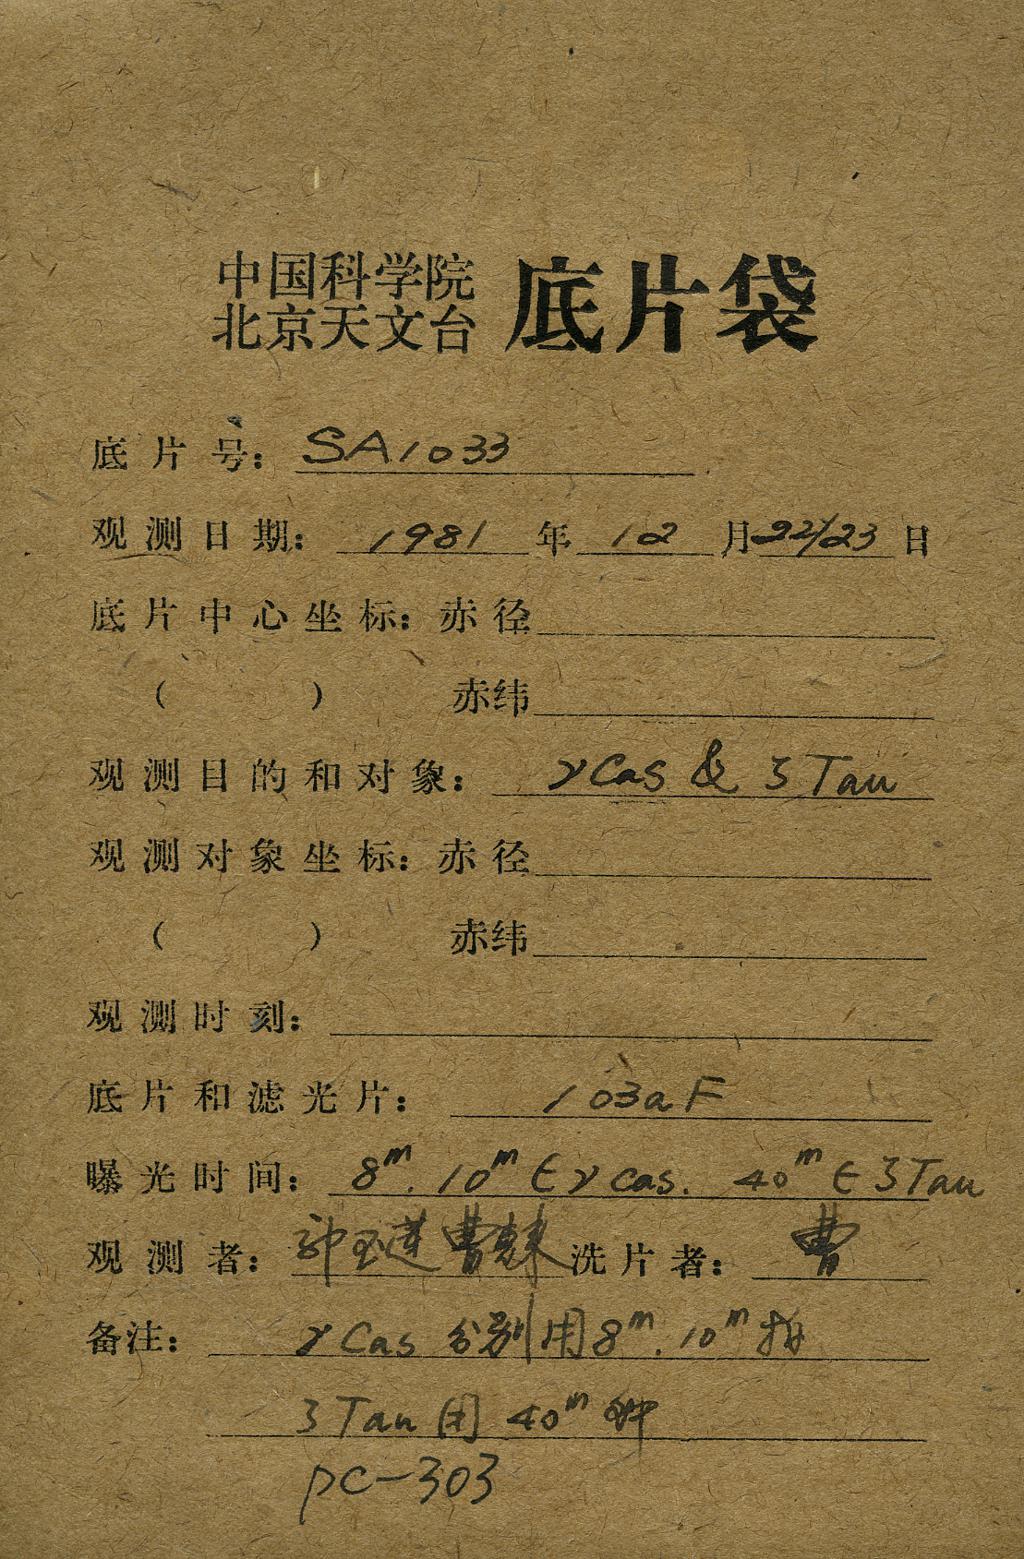 中国科学院
北京天文台 底片袋
底片号: SA1033
观测日期: 1981 年 12 月 22/23 日
底片中心坐标: 赤径
( ) 赤纬
观测目的和对象: γ Cas & ζ Tau
观测对象坐标: 赤径
( ) 赤纬
观测时刻:
底片和滤光片: 103aF
曝光时间: 8ᵐ. 10ᵐ ∈ γ cas. 40ᵐ ∈ ζ Tau
观测者: 曹 洗片者: 曹
备注: γ Cas 分别用 8ᵐ. 10ᵐ 拍
ζ Tau 用 40ᵐ
PC-303